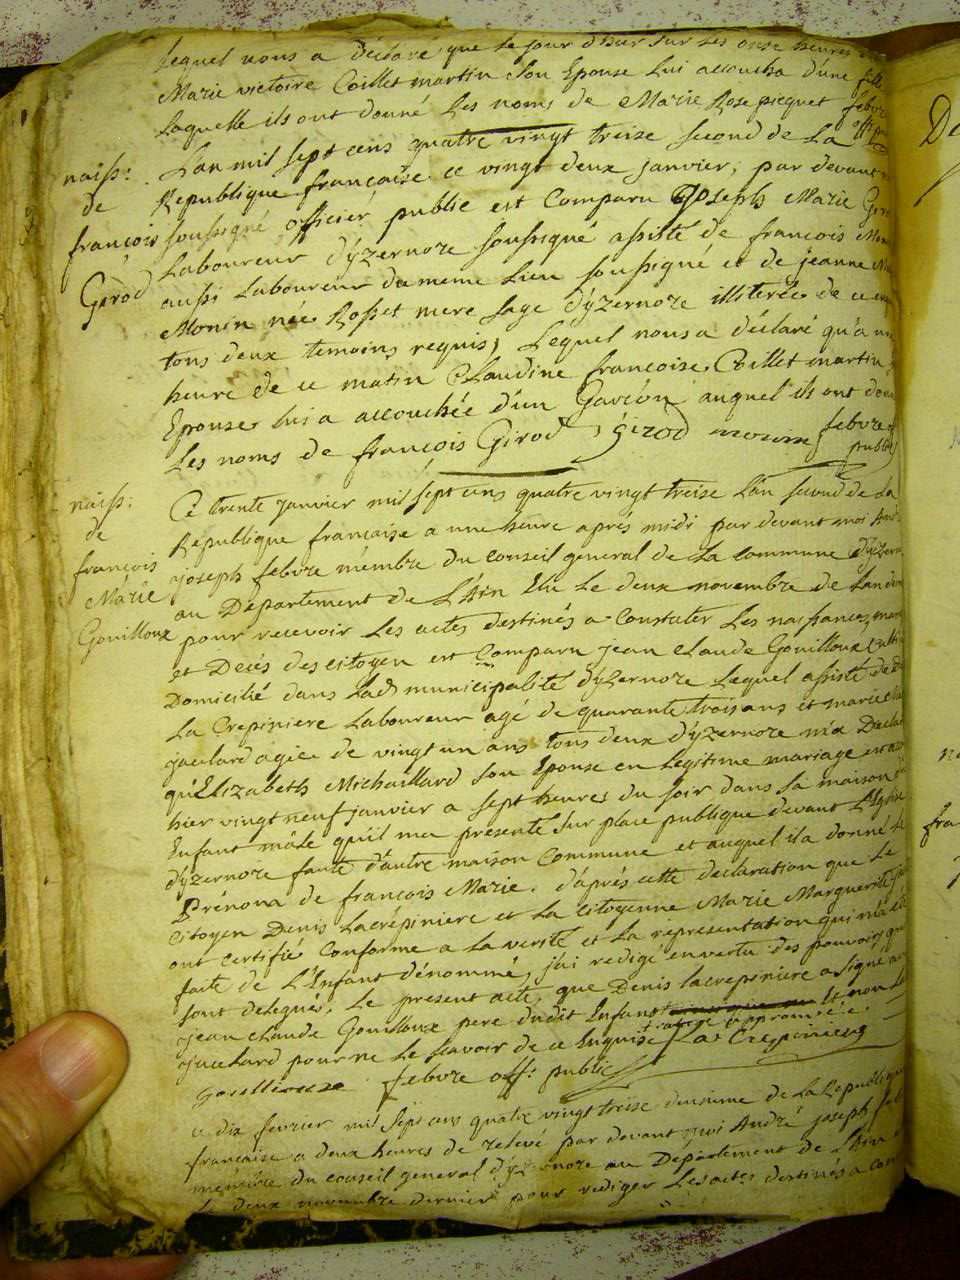 lequel nous a déclaré que le jour d'hier sur les onze heures
Marie victoire Coillet martin son Epouse lui accoucha d'une fille
laquelle ils ont donné les noms de Marie Rose picquet febvre
off: pu
naiss:
de
françois
Girod
L'an mil sept cens quatre vingt treize second de La
Republique française ce vingt deux janvier, par devant
soussigné officier public est Comparu Joseph Marie Giro
Laboureur d'yzernore soussigné assisté de françois Mon
aussi Laboureur du meme lieu soussigné et de jeanne
Monin née Rosset mere sage d'yzernore illiterée de ce
tous deux temoins requis, Lequel nous a déclaré qu'a une
heure de ce matin Claudine françoise Coillet martin
Epouse lui a accouchée d'un Garçon auquel ils ont don
Les noms de françois Girod, girod monin febvre
public
naiss:
de
françois
Marie
Gouilloux
Ce trente janvier mil sept cens quatre vingt treize L'an second de La
Republique française a une heure aprés midi par devant moi André
joseph febvre membre du conseil general de La commune d'yzern
au Département de L'Ain Elu le deux novembre de L'an der
pour recevoir Les actes destinés a Constater Les naissances, mar
et Decés des citoyen est Comparu jean Claude Gouilloux
Domicilié dans Lad municipalité d'yzernore Lequel assisté de
La Crepiniere Laboureur agé de quarante trois ans et marie
jaculard agée de vingt un ans tous deux d'yzernore m'a Decla
qu'Elizabeth Michaillard son Epouse en Legitime mariage est
hier vingt neuf janvier a sept heures du soir dans sa maison
Enfant mâle qu'il ma présenté sur place publique devant L'Eglise
d'yzernore faute d'autre maison Commune et auquel il a donné le
Prénom de françois Marie. d'après cette déclaration que le
Citoyen Denis Lacrépiniere et La citoyenne Marie Marguerite
ont certifié Conforme a La verité et La représentation qui m'a été
faite de L'Enfant dénommé, j'ai redigé en vertu des pouvoirs qui
sont delegués, Le present acte, que Denis lacrepiniere a signé
jean Claude Gouilloux pere dudit Enfant et non La
jaculard pour ne Le scavoir de ce Enquise rature approuvée.
La Crespiniere
gouilliouxe febvre off: public
Ce dix fevrier mil sept cens quatre vingt treize deuxieme de La Republique
française a deux heures de relevé par devant moi André joseph feb
membre du conseil general d'yzernore au Departement de L'Ain
le deux novembre dernier pour rediger Les actes destinés a con